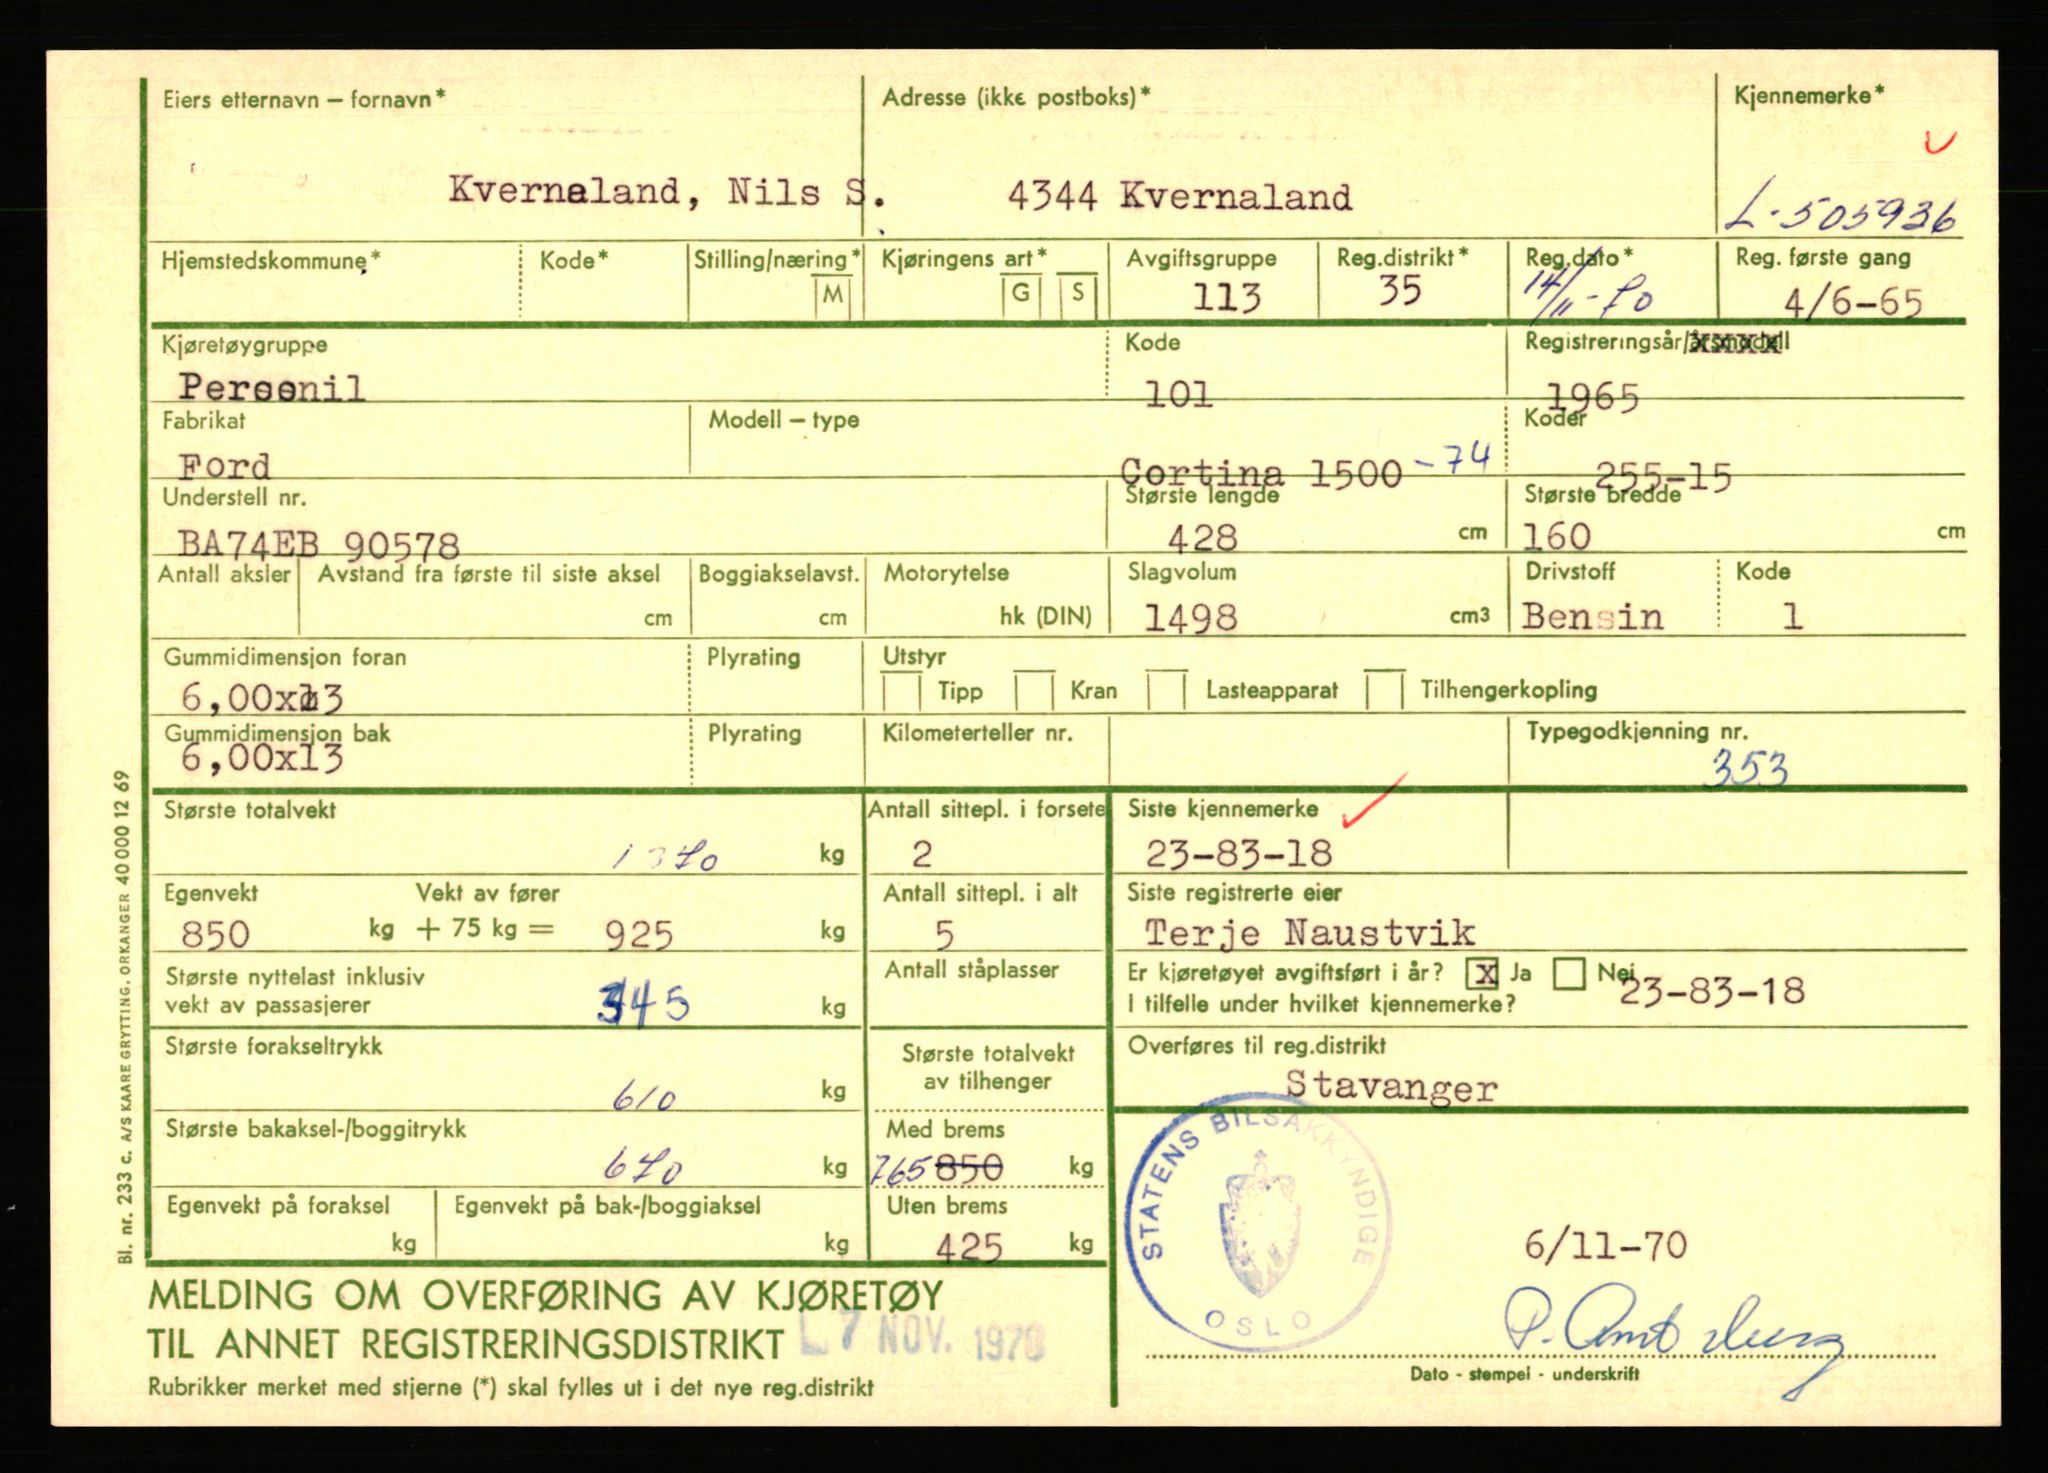 Eiers etternavn – fornavn*
Adresse (ikke postboks)*
Kjennemerke*
Kvernaland, Nils S.
4344 Kvernaland
L-505936
Hjemstedskommune*
Kode*
Stilling/næring*
M
Kjøringens art*
G
S
Avgiftsgruppe
113
Reg.distrikt*
35
Reg.dato*
14/11-70
Reg. første gang
4/6-65
Kjøretøygruppe
Personil
Kode
101
Registreringsår/årsmodell
1965
Fabrikat
Ford
Modell – type
Cortina 1500 -74
Koder
255-15
Understell nr.
BA74EB 90578
Største lengde
428 cm
Største bredde
160 cm
Antall aksler
Avstand fra første til siste aksel
cm
Boggiakselavst.
cm
Motorytelse
hk (DIN)
Slagvolum
1498 cm3
Drivstoff
Bensin
Kode
1
Gummidimensjon foran
6,00x13
Plyrating
Utstyr
Tipp
Kran
Lasteapparat
Tilhengerkopling
Gummidimensjon bak
6,00x13
Plyrating
Kilometerteller nr.
Typegodkjenning nr.
353
Største totalvekt
1370 kg
Antall sittepl. i forsete
2
Siste kjennemerke
23-83-18
Egenvekt
Vekt av fører
850 kg + 75 kg = 925 kg
Antall sittepl. i alt
5
Siste registrerte eier
Terje Naustvik
Største nyttelast inklusiv
vekt av passasjerer
345 kg
Antall ståplasser
Er kjøretøyet avgiftsført i år? X Ja Nei
I tilfelle under hvilket kjennemerke?
23-83-18
Største forakseltrykk
610 kg
Største totalvekt
av tilhenger
Overføres til reg.distrikt
Stavanger
Største bakaksel-/boggitrykk
670 kg
Med brems
765 850 kg
Egenvekt på foraksel
kg
Egenvekt på bak-/boggiaksel
kg
Uten brems
425 kg
STATENS BILSAKKYNDIGE
OSLO
6/11-70
MELDING OM OVERFØRING AV KJØRETØY
TIL ANNET REGISTRERINGSDISTRIKT
7 NOV. 1970
Rubrikker merket med stjerne (*) skal fylles ut i det nye reg.distrikt
Dato - stempel - underskrift
Bl. nr. 233 c. A/S KAARE GRYTTING, ORKANGER 40 000 12 69